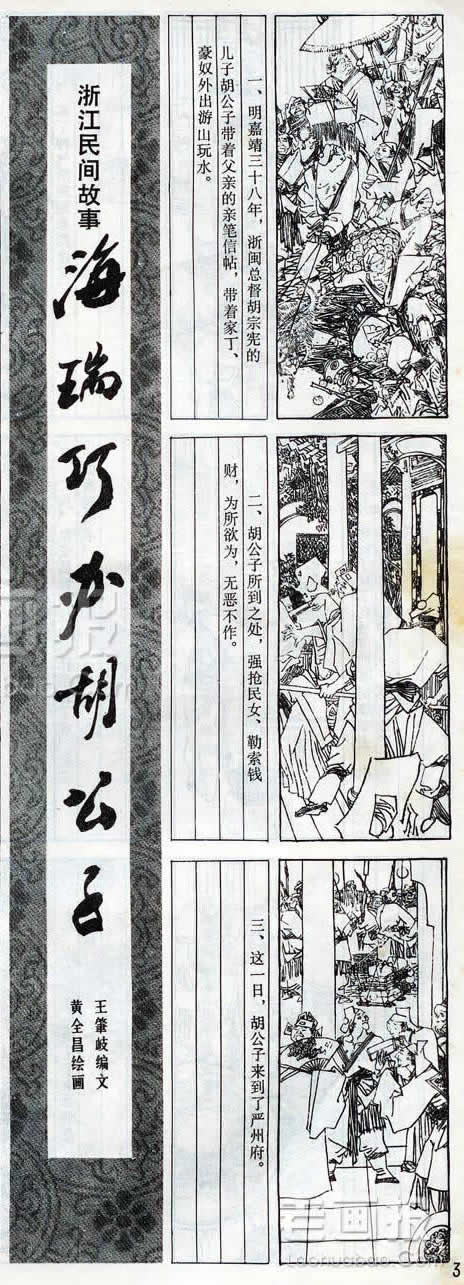 浙江民间故事
海瑞巧办胡公子
王肇岐编文
黄全昌绘画
一、明嘉靖三十八年，浙闽总督胡宗宪的
儿子胡公子带着父亲的亲笔信帖，带着家丁、
豪奴外出游山玩水。
二、胡公子所到之处，强抢民女、勒索钱
财，为所欲为，无恶不作。
三、这一日，胡公子来到了严州府。
老画报
Laohuabao.Com
3